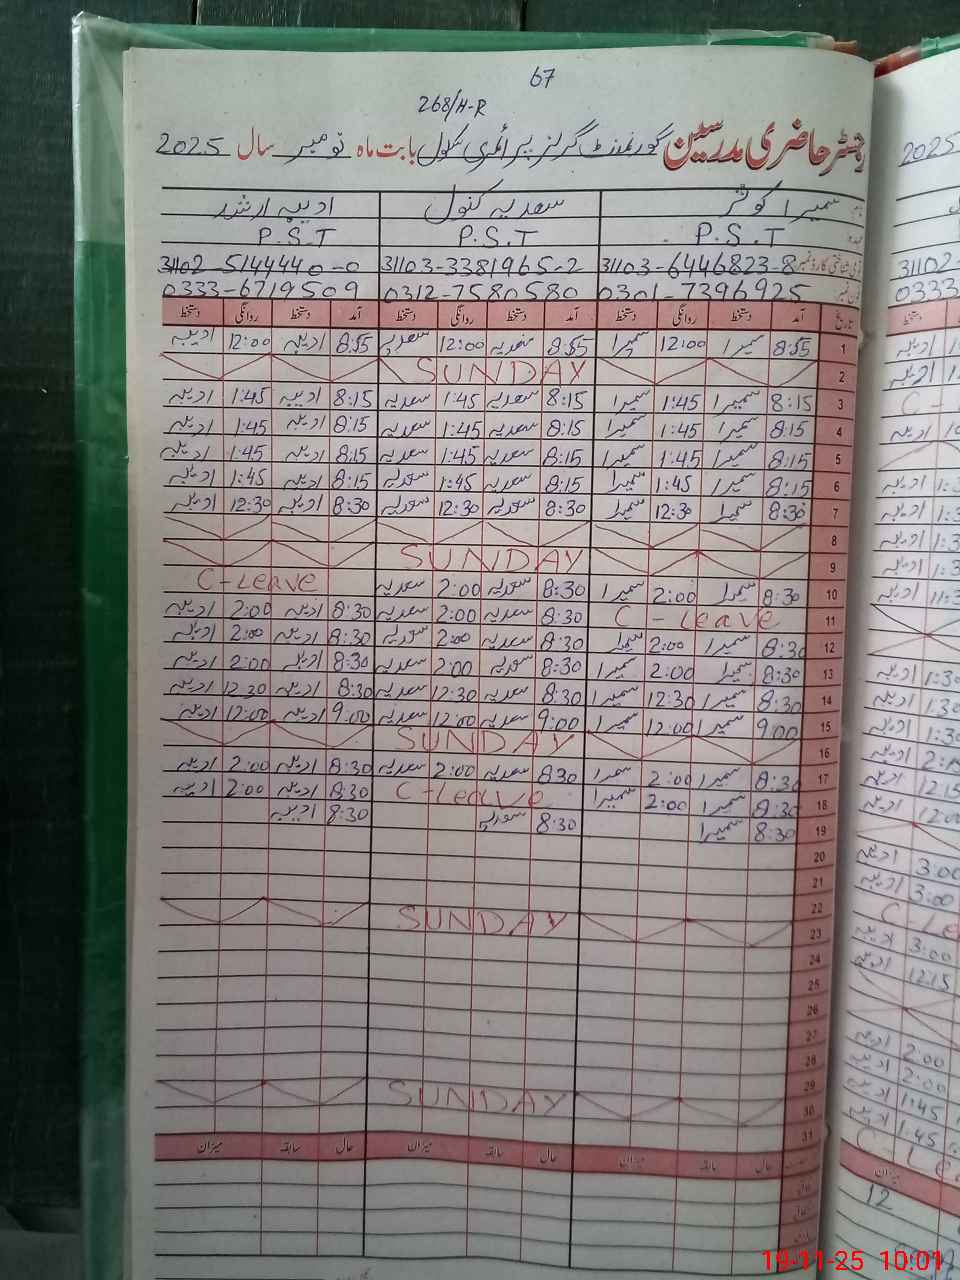 67
268/H-R
رجسٹر حاضری مدرسین گورنمنٹ گرلز پرائمری سکول بابت ماہ نومبر سال 2025
نام سمیرا کوثر سعدیہ کنول ادیبہ ارشد
عہدہ P.S.T P.S.T P.S.T
قومی شناختی کارڈ نمبر 31103-6446823-8 31103-3381965-2 31102-5144440-0
فون نمبر 0301-7396925 0312-7580580 0333-6719509
تاریخ آمد دستخط روانگی دستخط آمد دستخط روانگی دستخط آمد دستخط روانگی دستخط
1 8:55 سمیرا 12:00 سمیرا 8:55 سعدیہ 12:00 سعدیہ 8:55 ادیبہ 12:00 ادیبہ
2 SUNDAY
3 8:15 سمیرا 1:45 سمیرا 8:15 سعدیہ 1:45 سعدیہ 8:15 ادیبہ 1:45 ادیبہ
4 8:15 سمیرا 1:45 سمیرا 8:15 سعدیہ 1:45 سعدیہ 8:15 ادیبہ 1:45 ادیبہ
5 8:15 سمیرا 1:45 سمیرا 8:15 سعدیہ 1:45 سعدیہ 8:15 ادیبہ 1:45 ادیبہ
6 8:15 سمیرا 1:45 سمیرا 8:15 سعدیہ 1:45 سعدیہ 8:15 ادیبہ 1:45 ادیبہ
7 8:30 سمیرا 12:30 سمیرا 8:30 سعدیہ 12:30 سعدیہ 8:30 ادیبہ 12:30 ادیبہ
8
9 SUNDAY
10 8:30 سمیرا 2:00 سمیرا 8:30 سعدیہ 2:00 سعدیہ C-Leave
11 C-Leave 8:30 سعدیہ 2:00 سعدیہ 8:30 ادیبہ 2:00 ادیبہ
12 8:30 سمیرا 2:00 سمیرا 8:30 سعدیہ 2:00 سعدیہ 8:30 ادیبہ 2:00 ادیبہ
13 8:30 سمیرا 2:00 سمیرا 8:30 سعدیہ 2:00 سعدیہ 8:30 ادیبہ 2:00 ادیبہ
14 8:30 سمیرا 12:30 سمیرا 8:30 سعدیہ 12:30 سعدیہ 8:30 ادیبہ 12:30 ادیبہ
15 9:00 سمیرا 12:00 سمیرا 9:00 سعدیہ 12:00 سعدیہ 9:00 ادیبہ 12:00 ادیبہ
16 SUNDAY
17 8:30 سمیرا 2:00 سمیرا 8:30 سعدیہ 2:00 سعدیہ 8:30 ادیبہ 2:00 ادیبہ
18 8:30 سمیرا 2:00 سمیرا C-Leave 8:30 ادیبہ 2:00 ادیبہ
19 8:30 سمیرا 8:30 سعدیہ 8:30 ادیبہ
20
21
22
23 SUNDAY
24
25
26
27
28
29
30 SUNDAY
31
حال سابقہ میزان حال سابقہ میزان حال سابقہ میزان
2025
31102-
0333
دستخط
ادیبہ
ادیبہ
C-
ادیبہ
ادیبہ
ادیبہ
ادیبہ
ادیبہ
ادیبہ 11:3
ادیبہ 1:30
ادیبہ 1:30
ادیبہ 1:30
ادیبہ
ادیبہ 12:15
ادیبہ 12:00
ادیبہ 3:00
ادیبہ 3:00
C-Le
ادیبہ 3:00
ادیبہ 12:15
ادیبہ 2:00
ادیبہ 2:00
ادیبہ 1:45
ادیبہ 1:45
C-Le
میزان
12
19-11-25 10:01